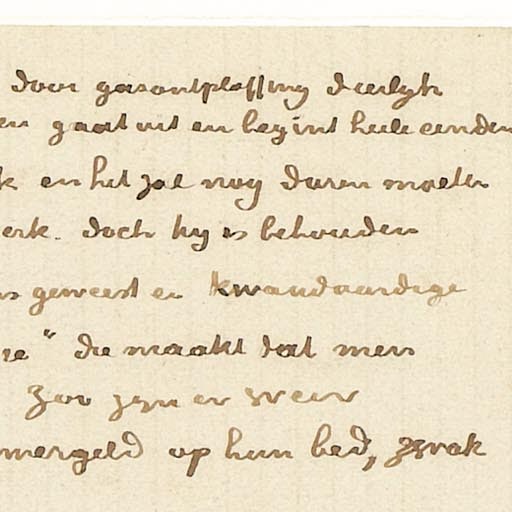 door gasontploffing deerlyk
en gaat uit en begint heele einden
k en het zal nog duren moeten
erk. doch hy is behouden
is geweest en kwaadaardige
se" die maakt dat men
Zoo zyn er weer
mergeld op hun bed, zwak